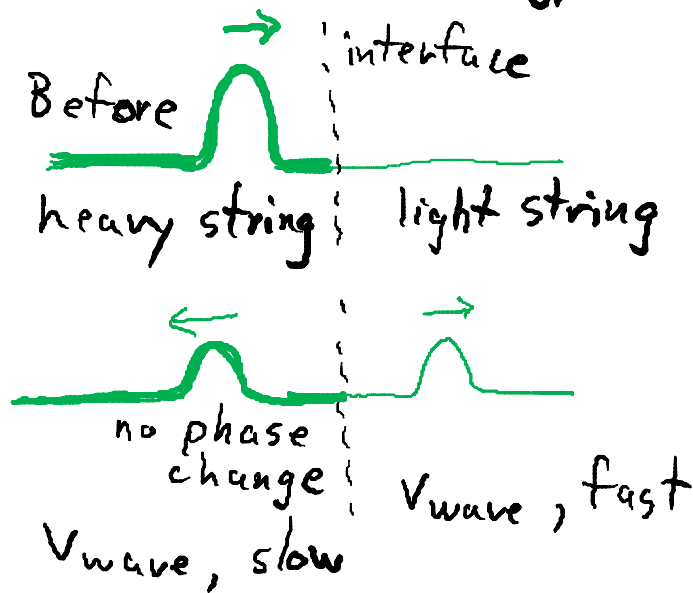 interface
Before
heavy string
light string
no phase
change
Vwave, fast
Vwave, slow